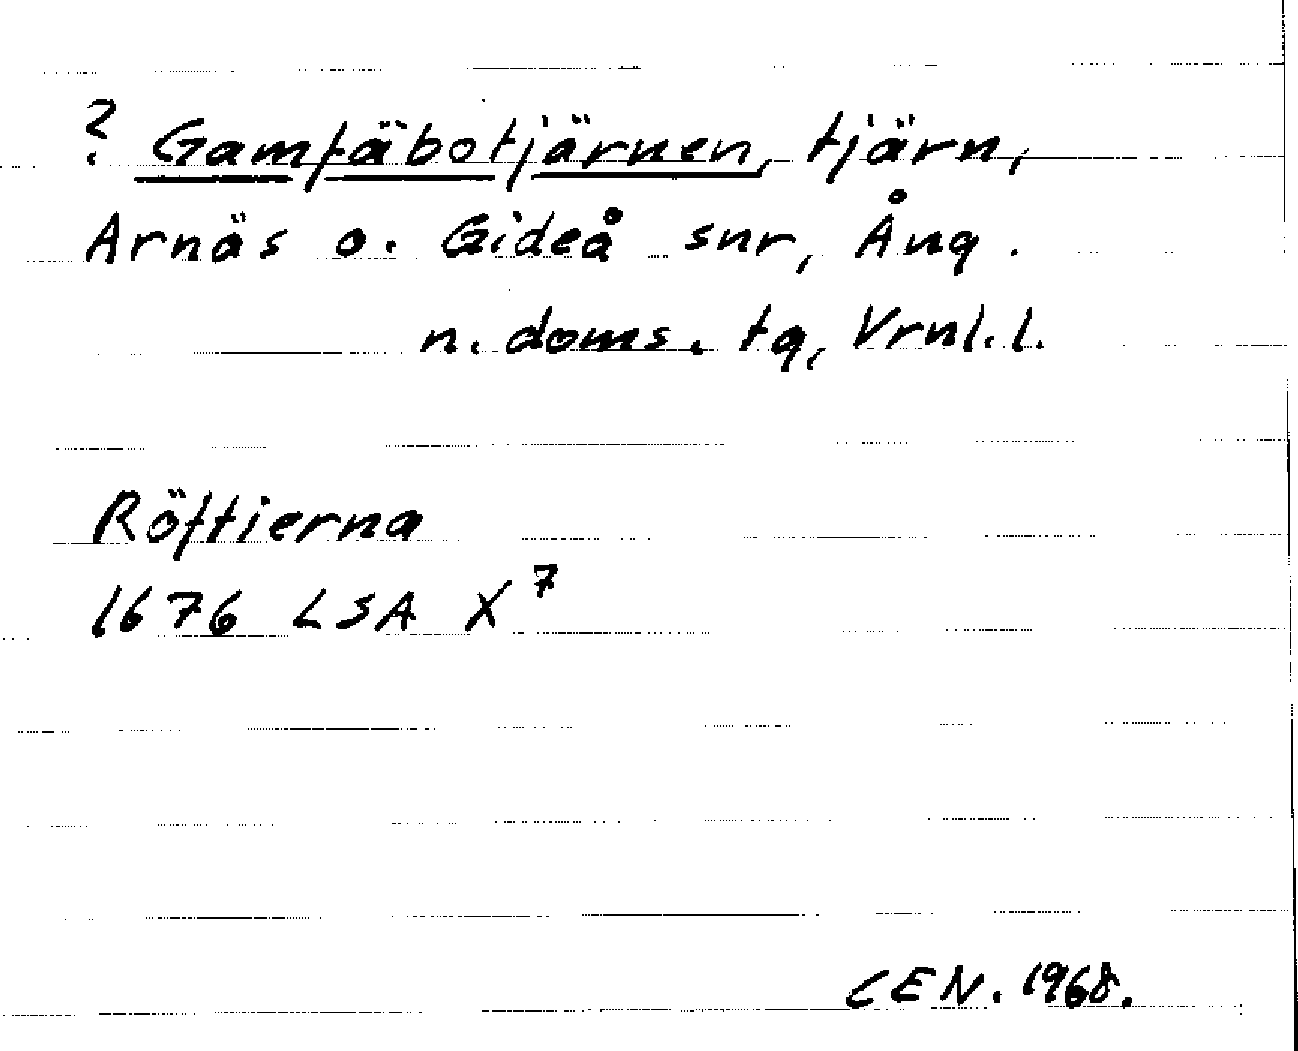 ? Gamfäbotjärnen, tjärn,
Arnäs o. Gideå snr, Ång.
n. doms. tg, Vrnl. l.
Röftierna
1676 LSA X7
CEN. 1968.